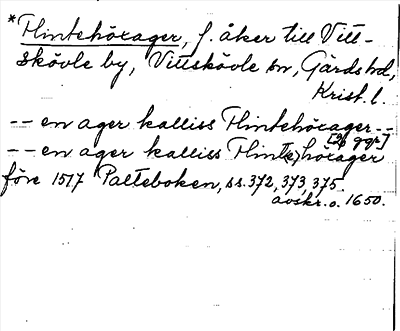 *Flintehörager, f. åker till Vitt-
skövle by, Vittskövle sn, Gärds hd,
Krist. l.
-- en ager kalliss Flintehörager --
[3 ggr]
-- en ager kalliss Flint(e)hörager
före 1517 Palteboken, ss. 372, 373, 375.
avskr. o. 1650.